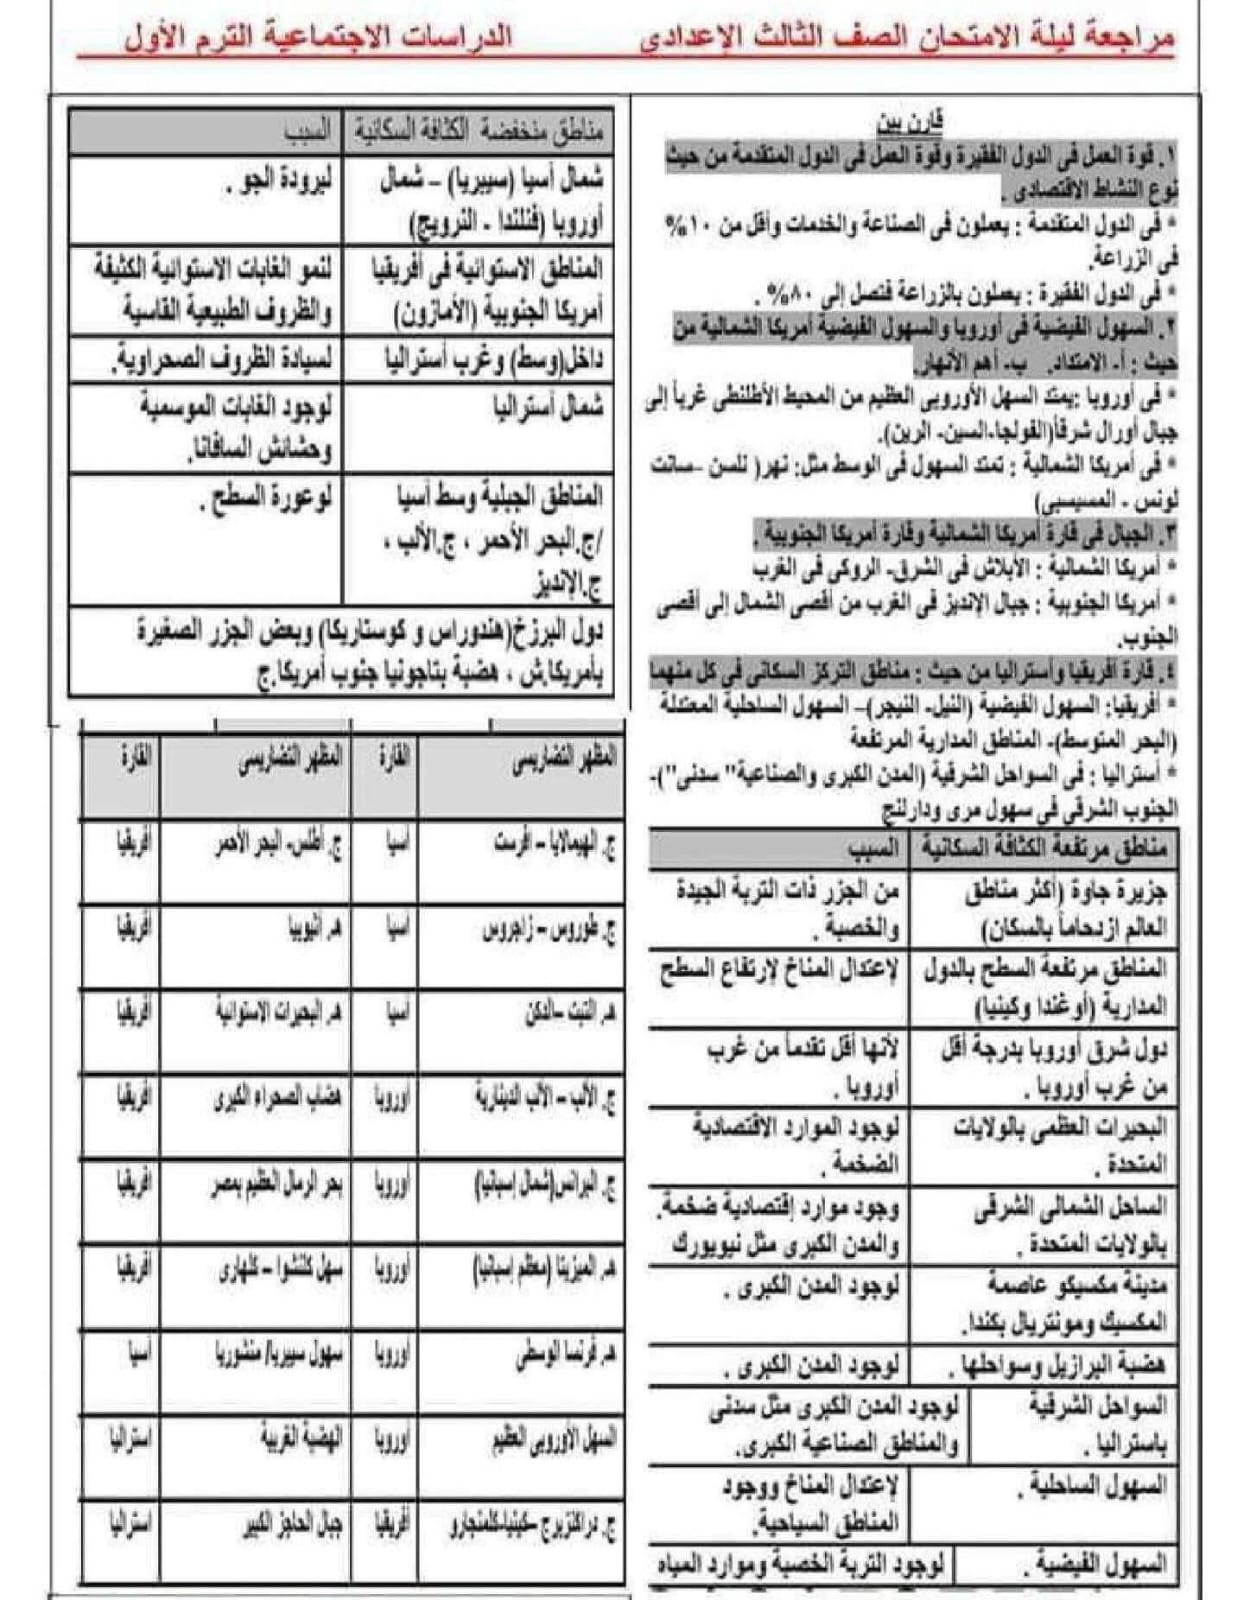 مراجعة ليلة الامتحان الصف الثالث الإعدادى الدراسات الاجتماعية الترم الأول
قارن بين
١. قوة العمل فى الدول الفقيرة وقوة العمل فى الدول المتقدمة من حيث
نوع النشاط الاقتصادى .
* فى الدول المتقدمة : يعملون فى الصناعة والخدمات وأقل من ١٠%
فى الزراعة.
* فى الدول الفقيرة : يعملون بالزراعة فتصل إلى ٨٠% .
٢. السهول الفيضية فى أوروبا والسهول الفيضية أمريكا الشمالية من
حيث : أ- الامتداد. ب- أهم الأنهار.
* فى أوروبا :يمتد السهل الأوروبى العظيم من المحيط الأطلنطى غرباً إلى
جبال أورال شرقاً(الفولجا-السين- الرين).
* فى أمريكا الشمالية : تمتد السهول فى الوسط مثل: نهر( نلسن –سانت
لونس - المسيسبى)
٣. الجبال فى قارة أمريكا الشمالية وقارة أمريكا الجنوبية .
* أمريكا الشمالية : الأبلاش فى الشرق- الروكى فى الغرب
* أمريكا الجنوبية : جبال الإنديز فى الغرب من أقصى الشمال إلى أقصى
الجنوب.
٤. قارة أفريقيا وأستراليا من حيث : مناطق التركز السكانى فى كل منهما
* أفريقيا: السهول الفيضية (النيل- النيجر)– السهول الساحلية المعتدلة
(البحر المتوسط)- المناطق المدارية المرتفعة
* أستراليا : فى السواحل الشرقية (المدن الكبرى والصناعية" سدنى")-
الجنوب الشرقي في سهول مرى ودارلنج
مناطق مرتفعة الكثافة السكانية السبب
جزيرة جاوة (أكثر مناطق من الجزر ذات التربة الجيدة
العالم ازدحاماً بالسكان) والخصبة .
المناطق مرتفعة السطح بالدول لإعتدال المناخ لإرتفاع السطح
المدارية (أوغندا وكينيا)
دول شرق أوروبا بدرجة أقل لأنها أقل تقدماً من غرب
من غرب أوروبا . أوروبا .
البحيرات العظمى بالولايات لوجود الموارد الاقتصادية
المتحدة . الضخمة .
الساحل الشمالى الشرقى وجود موارد إقتصادية ضخمة.
بالولايات المتحدة . والمدن الكبرى مثل نيويورك
مدينة مكسيكو عاصمة لوجود المدن الكبرى .
المكسيك ومونتريال بكندا.
هضبة البرازيل وسواحلها . لوجود المدن الكبرى .
السواحل الشرقية لوجود المدن الكبرى مثل سدنى
باستراليا . والمناطق الصناعية الكبرى.
السهول الساحلية . لإعتدال المناخ ووجود
المناطق السياحية.
السهول الفيضية . لوجود التربة الخصبة وموارد المياه
مناطق منخفضة الكثافة السكانية السبب
شمال أسيا (سيبريا) – شمال لبرودة الجو .
أوروبا (فنلندا - النرويج)
المناطق الاستوانية فى أفريقيا لنمو الغابات الاستوانية الكثيفة
أمريكا الجنوبية (الأمازون) والظروف الطبيعية القاسية
داخل(وسط) وغرب أستراليا لسيادة الظروف الصحراوية.
شمال أستراليا لوجود الغابات الموسمية
وحشائش السافانا.
المناطق الجبلية وسط أسيا لوعورة السطح .
/ج.البحر الأحمر ، ج.الألب ،
ج.الإنديز
دول البرزخ(هندوراس و كوستاريكا) وبعض الجزر الصغيرة
بأمريكا.ش ، هضبة بتاجونيا جنوب أمريكا.ج
المظهر التضاريسى القارة المظهر التضاريسى القارة
ج. الهيمالايا – افرست أسيا ج. أطلس- البحر الأحمر أفريقيا
ج. طوروس – زاجروس أسيا هـ. أثيوبيا أفريقيا
هـ. التبت –الدكن أسيا هـ. البحيرات الاستوانية أفريقيا
ج. الألب – الألب الدينارية أوروبا هضاب الصحراء الكبرى أفريقيا
ج. البرانس(شمال إسبانيا) أوروبا بحر الرمال العظيم بمصر أفريقيا
هـ. الميزيتا (معظم إسبانيا) أوروبا سهل كلنشوا – كلهارى أفريقيا
هـ. فرنسا الوسطى أوروبا سهول سيبريا/ منشوريا أسيا
السهل الأوروبى العظيم أوروبا الهضبة الغربية استراليا
ج. دراكنزبرج –كينيا-كلمنجارو أفريقيا جبال الحاجز الكبير استراليا